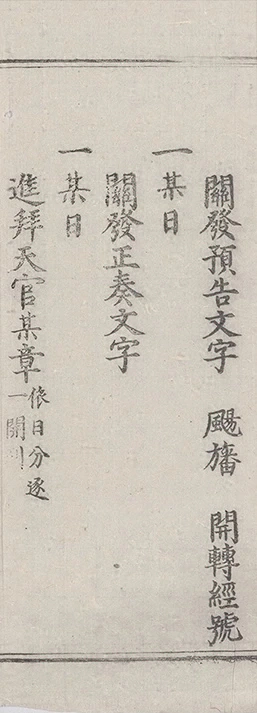 關發預告文字 颺旛 開轉經號
一某日
關發正奏文字
一某日
進拜天官某章依日分逐一開列